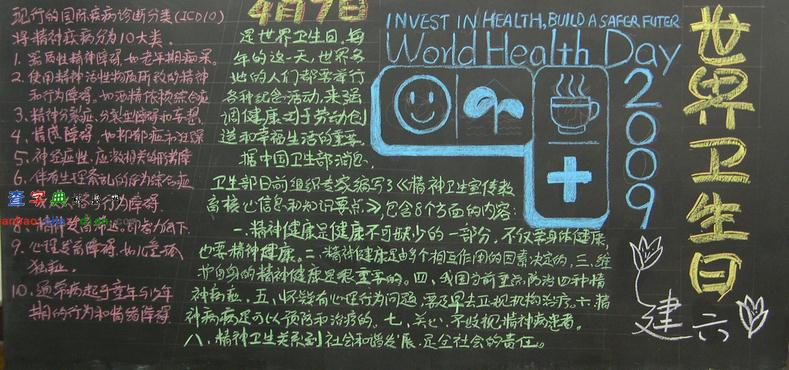 现行的国际疾病诊断分类(ICD10)
将精神疾病分为10大类.
1. 器质性精神障碍,如老年期痴呆.
2. 使用精神活性物质所致的精神
和行为障碍.如酒精依赖综合症
3. 精神分裂症,分裂型障碍和妄想
4. 情感障碍,如抑郁症和狂躁
5. 神经症性,应激相关的躯体障碍
6. 伴有生理紊乱的行为综合症
行为障碍.
8. 精神发育
9. 心理发育障碍.如儿童孤
独症.
10. 通常病起于童年与少年
期的行为和情绪障碍
4月7日
是世界卫生日,每
年的这一天,世界各
地的人们都要举行
各种纪念活动,来强
调健康对于劳动创
造和幸福生活的重要.
据中国卫生部消息,
卫生部日前组织专家编写了《精神卫生宣传教
育核心信息和知识要点》,包含8个方面的内容:
一.精神健康是健康不可缺少的一部分,不仅要身体健康,
也要精神健康。二.精神健康是由多个相互作用的因素决定的,三.维
护自身的精神健康是很重要的。四.我国当前重点防治四种精
神病症。五.怀疑有心理行为问题,要及早去正规机构治疗.六.精
神疾病是可以预防和治疗的。七.关心.不歧视精神病患者。
八.精神卫生关系到社会和谐发展,是全社会的责任。
INVEST IN HEALTH, BUILD A SAFER FUTER
World Health Day
2009
世界卫生日
建六
查字典